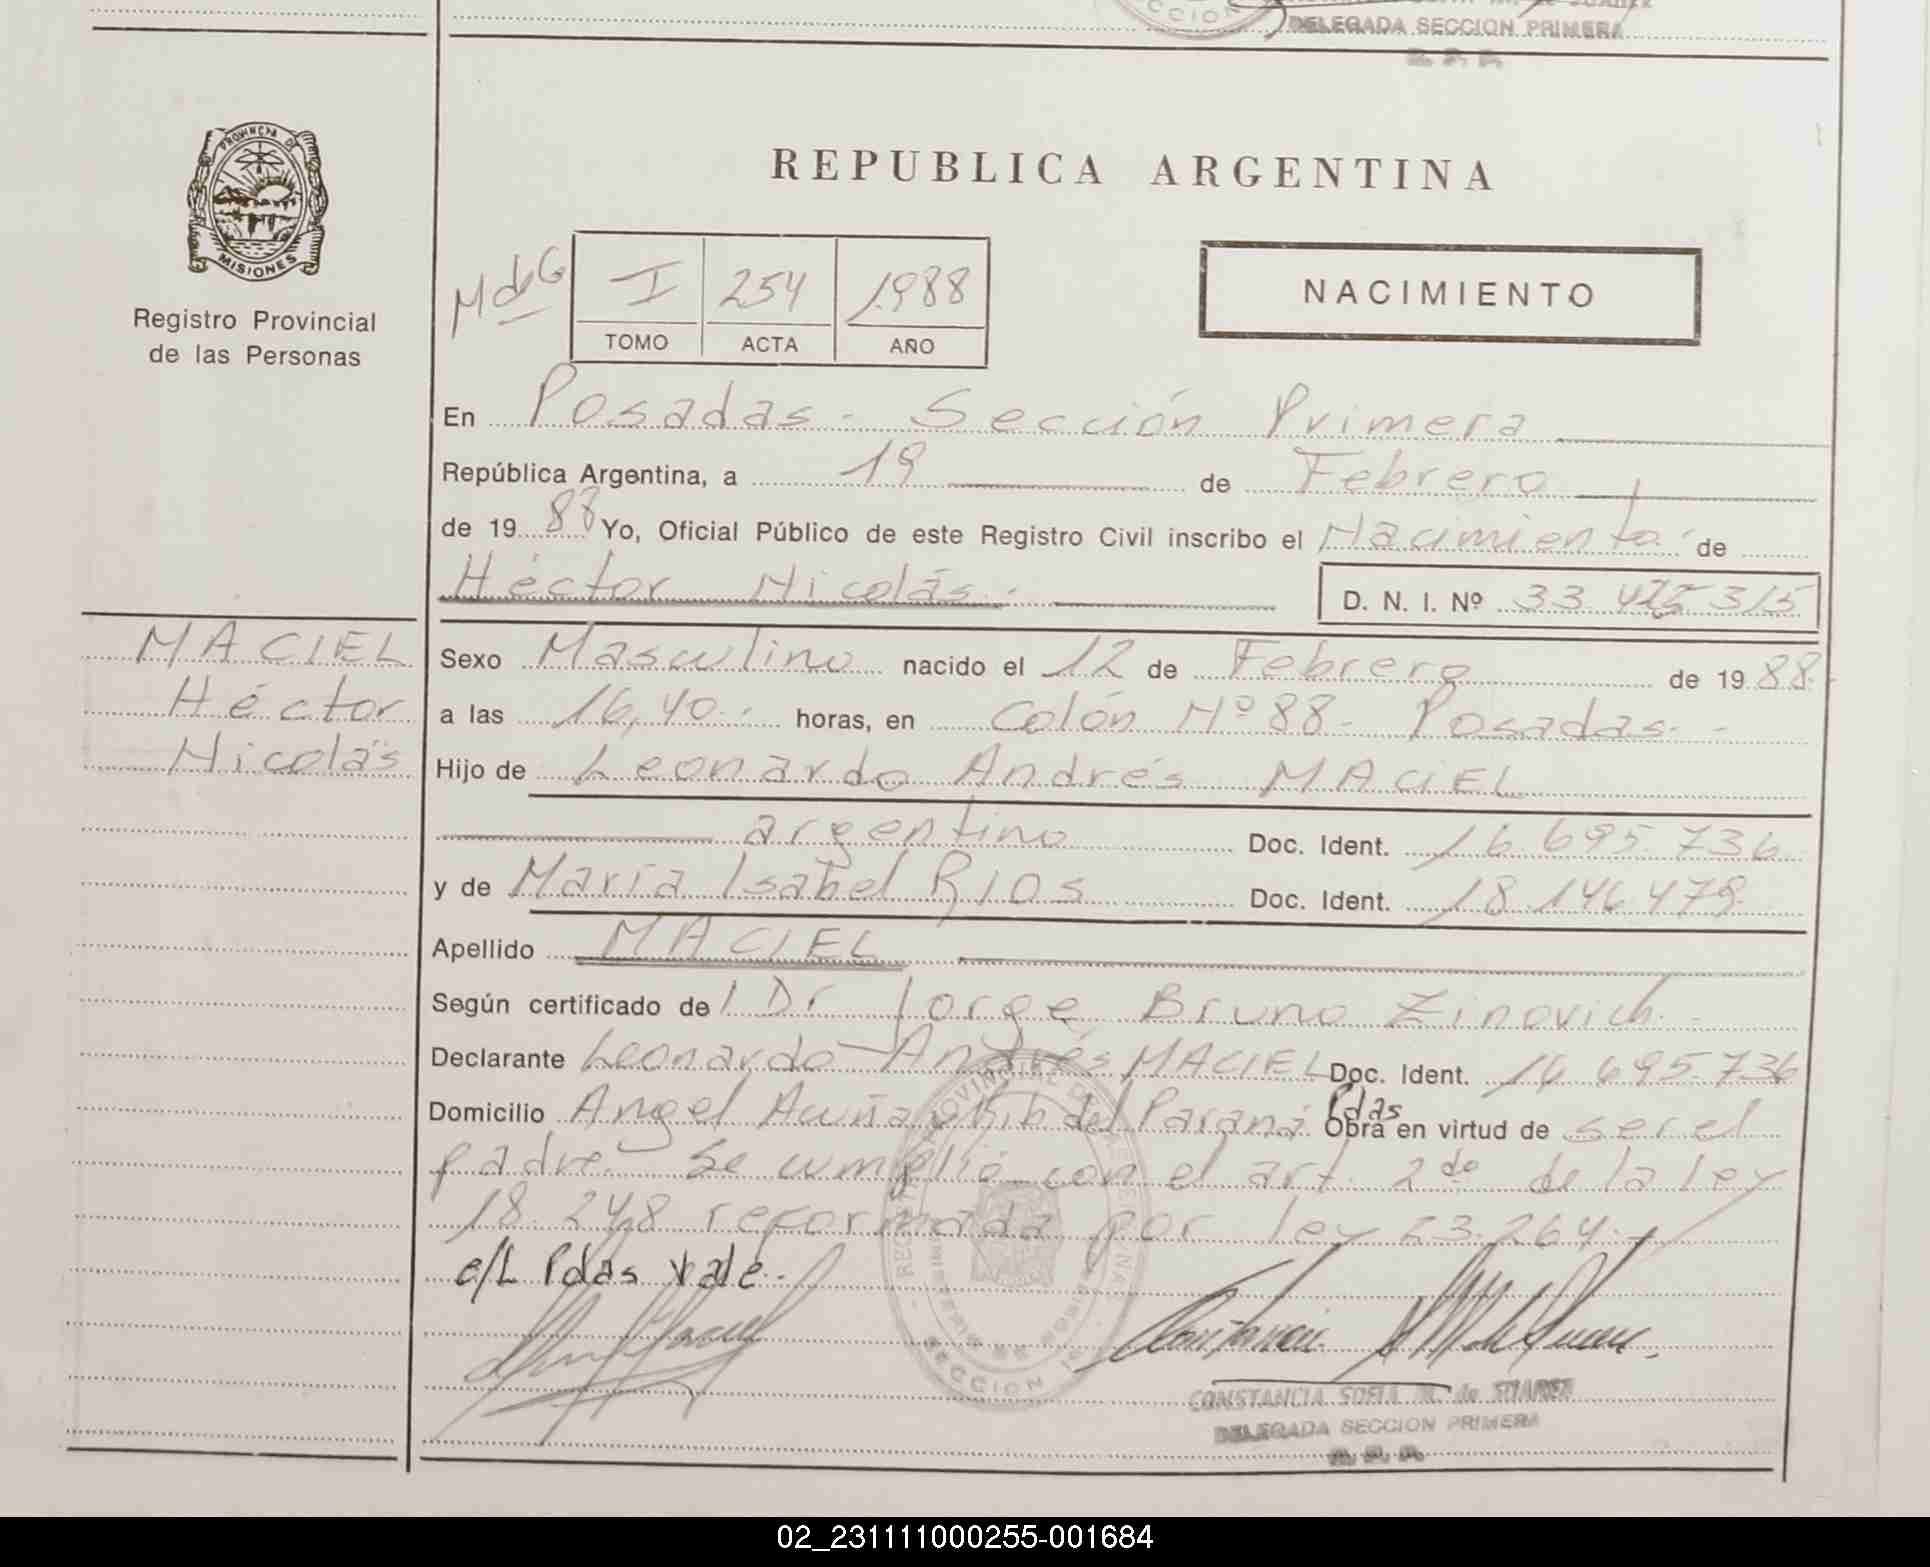 DELEGADA SECCION PRIMERA
R. P. P.
PROVINCIA DE
MISIONES
Registro Provincial
de las Personas
REPUBLICA ARGENTINA
NACIMIENTO
I 254 1988
TOMO ACTA AÑO
En Posadas - Sección Primera
República Argentina, a 19 de Febrero
de 1988 Yo, Oficial Público de este Registro Civil inscribo el Nacimiento de
Héctor Nicolás.
D. N. I. Nº 33 315
MACIEL
Héctor
Nicolás
Sexo Masculino nacido el 12 de Febrero de 1988.
a las 16,40.- horas, en Colón Nº 88 - Posadas.-
Hijo de Leonardo Andrés MACIEL
argentino Doc. Ident. 16.695.736
y de María Isabel RIOS Doc. Ident. 18.146.479.
Apellido MACIEL
Según certificado del Dr Jorge Bruno Zinovich.-
Declarante Leonardo Andrés MACIEL Doc. Ident. 16.695.736
Pdas
Domicilio Angel Acuña del Paraná. Obra en virtud de ser el
padre.- Se cumplió con el art. 2do de la ley
18.248 reformada por ley 23.264.-
e/L Pdas vale.-
SECCION 1a
CONSTANCIA SOFIA M. de SUAREZ
DELEGADA SECCION PRIMERA
R. P. P.
02_231111000255-001684